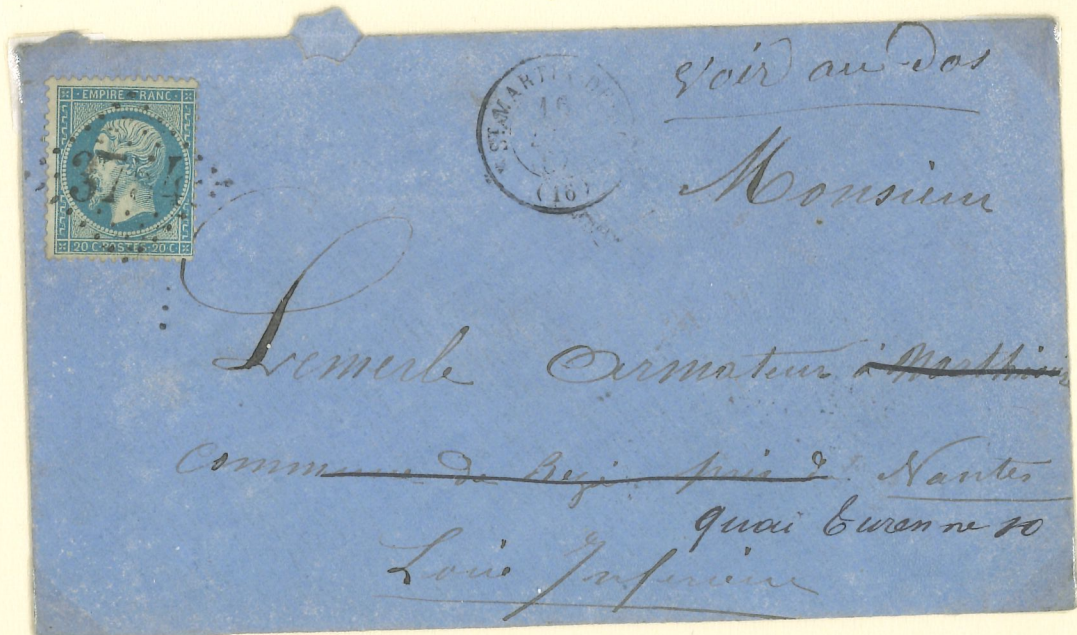 EMPIRE FRANC
37
20 C POSTES 20 C
ST MARTIN DE
16
(16)
Voir au dos
Monsieur
Lemerle Armateur à
Commune de Rezé près de Nantes
quai Turenne 10
Loire Inférieure